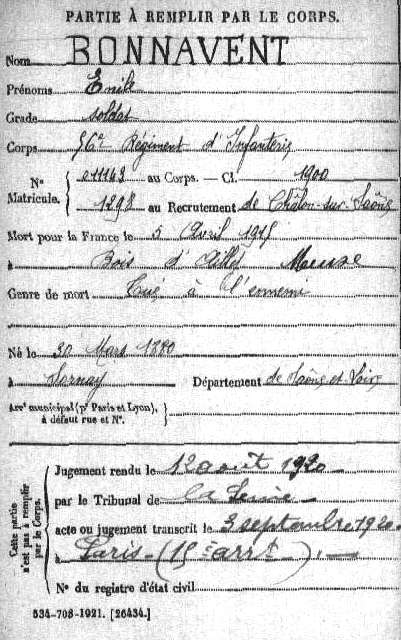 PARTIE À REMPLIR PAR LE CORPS.
Nom BONNAVENT
Prénoms Emile
Grade soldat
Corps 56e Régiment d'Infanterie
N° Matricule. 011143 au Corps. — Cl. 1900
1298 au Recrutement de Châlon-sur-Saône
Mort pour la France le 5 Avril 1915
à Bois d'Ailly Meuse
Genre de mort Tué à l'ennemi
Né le 30 Mars 1880
à Sornay Département de Saône-et-Loire
Arrt municipal (pr Paris et Lyon), à défaut rue et N°.
Cette partie n'est pas à remplir par le Corps.
Jugement rendu le 12 août 1920
par le Tribunal de la Seine
acte ou jugement transcrit le 3 septembre 1920
à Paris (15e arrt).
N° du registre d'état civil
534-708-1921. [26434.]